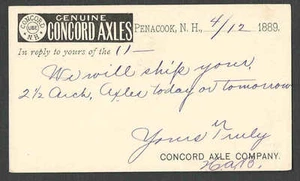 GENUINE
CONCORD AXLES
CONCORD
N.H.
PENACOOK, N. H., 4/12 1889.
In reply to yours of the 11—
We will ship your
2½ Arch, Axles today or tomorrow
Yours Truly
CONCORD AXLE COMPANY.